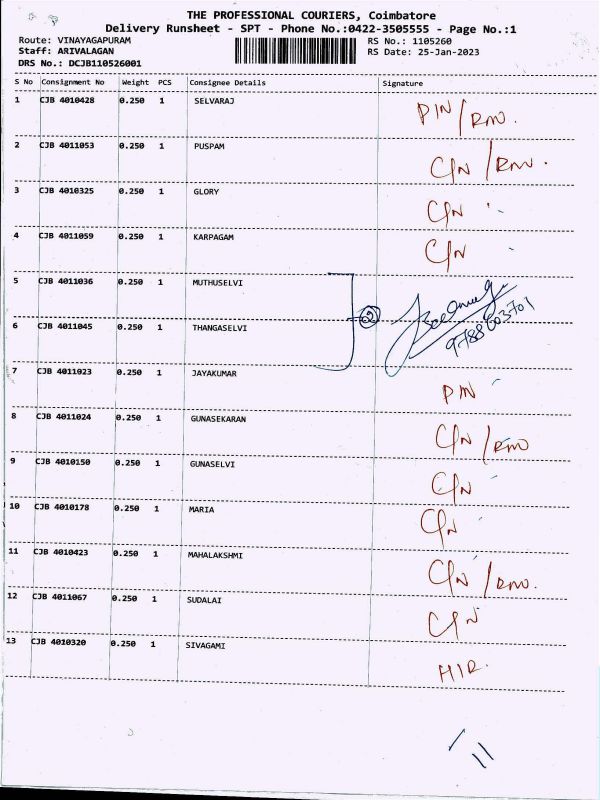 THE PROFESSIONAL COURIERS, Coimbatore
Delivery Runsheet - SPT - Phone No.:0422-3505555 - Page No.:1
Route: VINAYAGAPURAM RS No.: 1105260
Staff: ARIVALAGAN RS Date: 25-Jan-2023
DRS No.: DCJB110526001
S No Consignment No Weight PCS Consignee Details Signature
1 CJB 4010428 0.250 1 SELVARAJ PIN/RNO.
2 CJB 4011053 0.250 1 PUSPAM C/N/RNO.
3 CJB 4010325 0.250 1 GLORY C/N
4 CJB 4011059 0.250 1 KARPAGAM C/N
5 CJB 4011036 0.250 1 MUTHUSELVI
2
6 CJB 4011045 0.250 1 THANGASELVI
7 CJB 4011023 0.250 1 JAYAKUMAR PIN
8 CJB 4011024 0.250 1 GUNASEKARAN C/N/RNO
9 CJB 4010150 0.250 1 GUNASELVI C/N
10 CJB 4010178 0.250 1 MARIA C/N
11 CJB 4010423 0.250 1 MAHALAKSHMI C/N/RNO.
12 CJB 4011067 0.250 1 SUDALAI C/N
13 CJB 4010320 0.250 1 SIVAGAMI HIR.
11